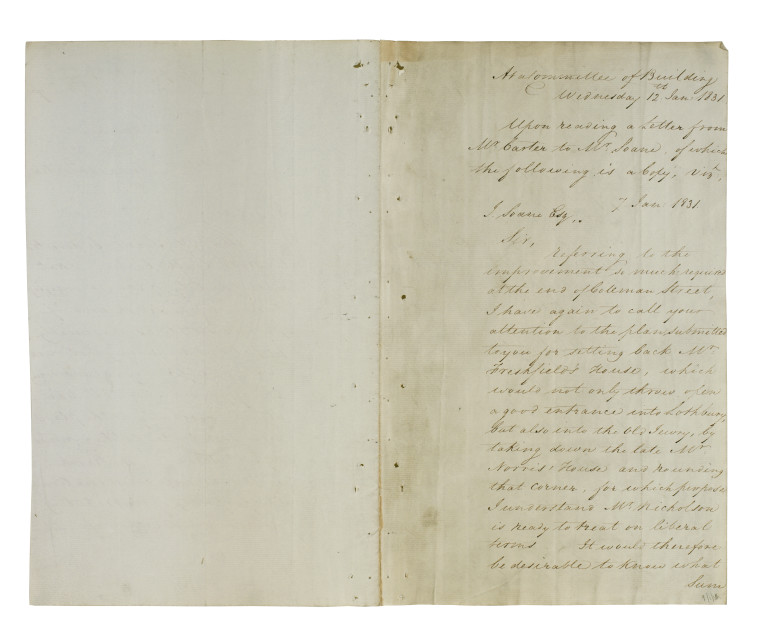 At a Committee of Building
Wednesday 12th Jan 1831
Upon reading a Letter from
Mr Carter to Mr Soane, of which
the following is a Copy, Vizt,
7 Jan 1831
J. Soane Esq,
Sir,
Referring to the
improvement so much required
at the end of Coleman Street,
I have again to call your
attention to the plan submitted
to you for setting back Mr
Freshfield's House, which
would not only throw open
a good entrance into Lothbury,
but also into the Old Jewry, by
taking down the late Mr
Norris' House and rounding
that Corner, for which purpose
I understand Mr Nicholson
is ready to treat on liberal
terms. It would therefore
be desirable to know what
Sum